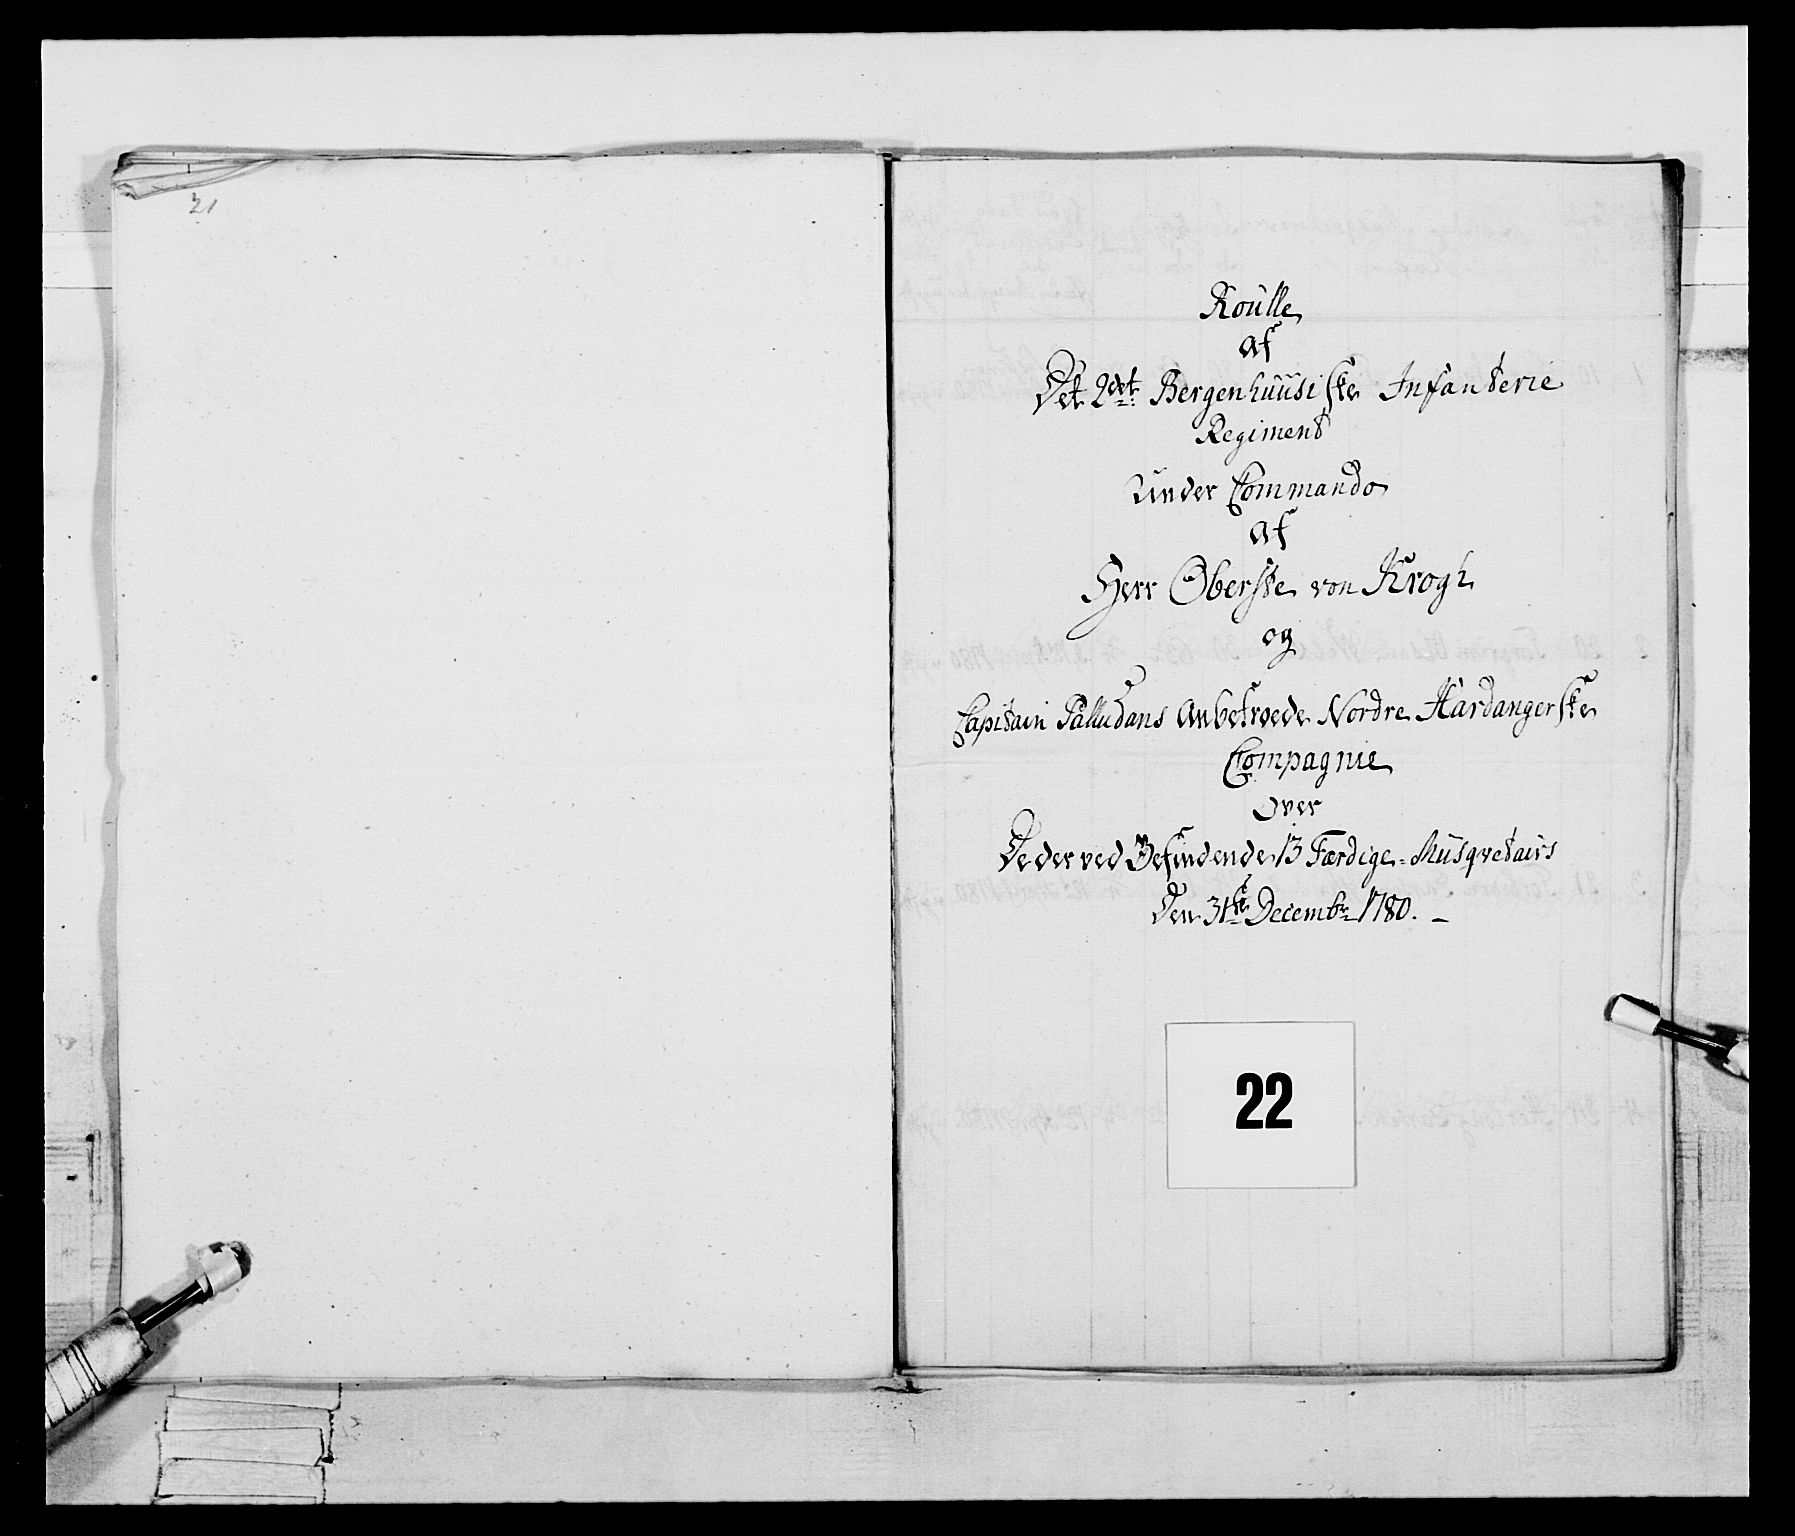 21
Roulle
af
Det 2det Bergenhuusiske Infanterie
Regiment
Under Commando
af
Herr Oberste von Krogh
og
Capitain Palludans Anbetroede Nordre Hardangerske
Compagnie
Over
De der ved Befindende 13 Færdige Musqvetairs
Den 31te Decembr 1780.
22